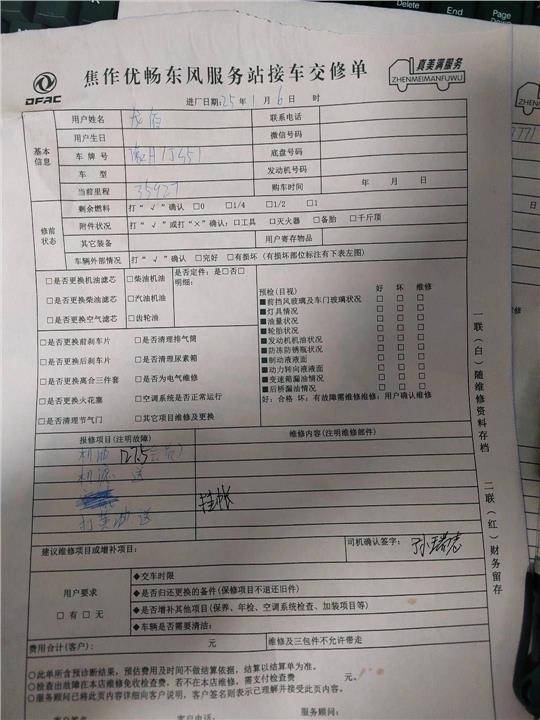 Delete
End
Page
Down
DFAC
焦作优畅东风服务站接车交修单
真美满服务
ZHENMEIMANFUWU
进厂日期:25年1月6日 时
基本信息
用户姓名
联系电话
用户生日
微信号码
车牌号
底盘号码
车型
发动机号码
当前里程 35927
购车时间 年 月 日
修前状态
剩余燃料 打“√”确认 □0 □1/4 □1/2 □1
附件状况 打“√”或打“×”确认:□工具 □灭火器 □备胎 □千斤顶
其它装备
用户寄存物品
车辆外部情况 打“√”确认 □完好 □有损坏(有损坏部位标注有下表左图)
□是否更换机油滤芯 □柴油机油
□是否更换柴油滤芯 □汽油机油
□是否更换空气滤芯 □齿轮油
是否定件:是□否□
明细:
□是否更换前刹车片 □是否清理排气筒
□是否更换后刹车片 □是否清理尿素箱
□是否更换离合三件套 □是否为电气维修
□是否更换火花塞 □空调系统是否正常运行
□是否清理节气门 □其它项目维修及更换
预检(目视) 好 坏 维修
■前挡风玻璃及车门玻璃状况 □ □ □
■灯具情况 □ □ □
■油量状况 □ □ □
■轮胎状况 □ □ □
■发动机机油状况 □ □ □
■防冻防锈瓶状况 □ □ □
■制动液液面 □ □ □
■动力转向液液面 □ □ □
■变速箱漏油情况 □ □ □
■后桥漏油情况 □ □ □
好:合格 坏:有故障需维修维修:用户确认维修
报修项目(注明故障)
维修内容(注明维修部件)
机油
机滤 送
打黄油 送
挂帐
建议维修项目或增补项目:
司机确认签字:
用户要求
□有□无
◆交车时限
◆是否归还更换的备件(保修项目不退还旧件)
◆是否增补其他项目(保养、年检、空调系统检查、加装项目等)
◆车辆是否需要清洁:
费用合计(客户): 元
※维修及三包件不允许带走
○此单所含预诊断结果,预估费用及时间不做结算依据,结算以结算单为准。
○检查出故障在本店维修免收检查费,若不在本店维修,需支付检查费 元。
○服务顾问已将此页内容详细向客户说明,客户签名则表示已理解并接受此页内容。
客户电话:
服务顾问:
一联(白)随维修资料存档
二联(红)财务留存